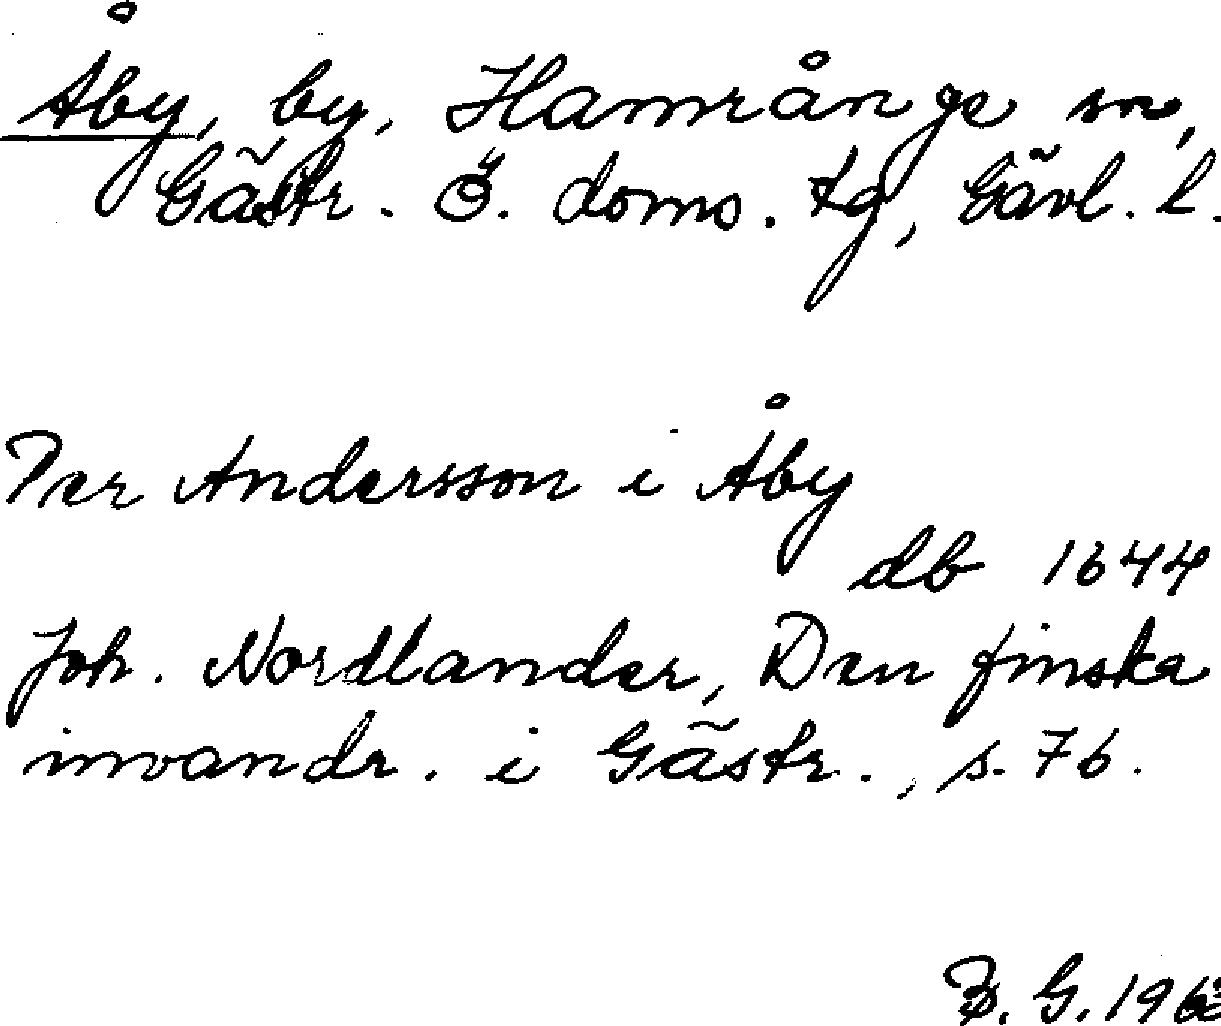 Åby, by, Hamrånge sn,
Gästr. Ö. doms. tg, Gävl. l.
Per Andersson i Åby
db 1644
Joh. Nordlander, Den finska
invandr. i Gästr., s. 76.
G.